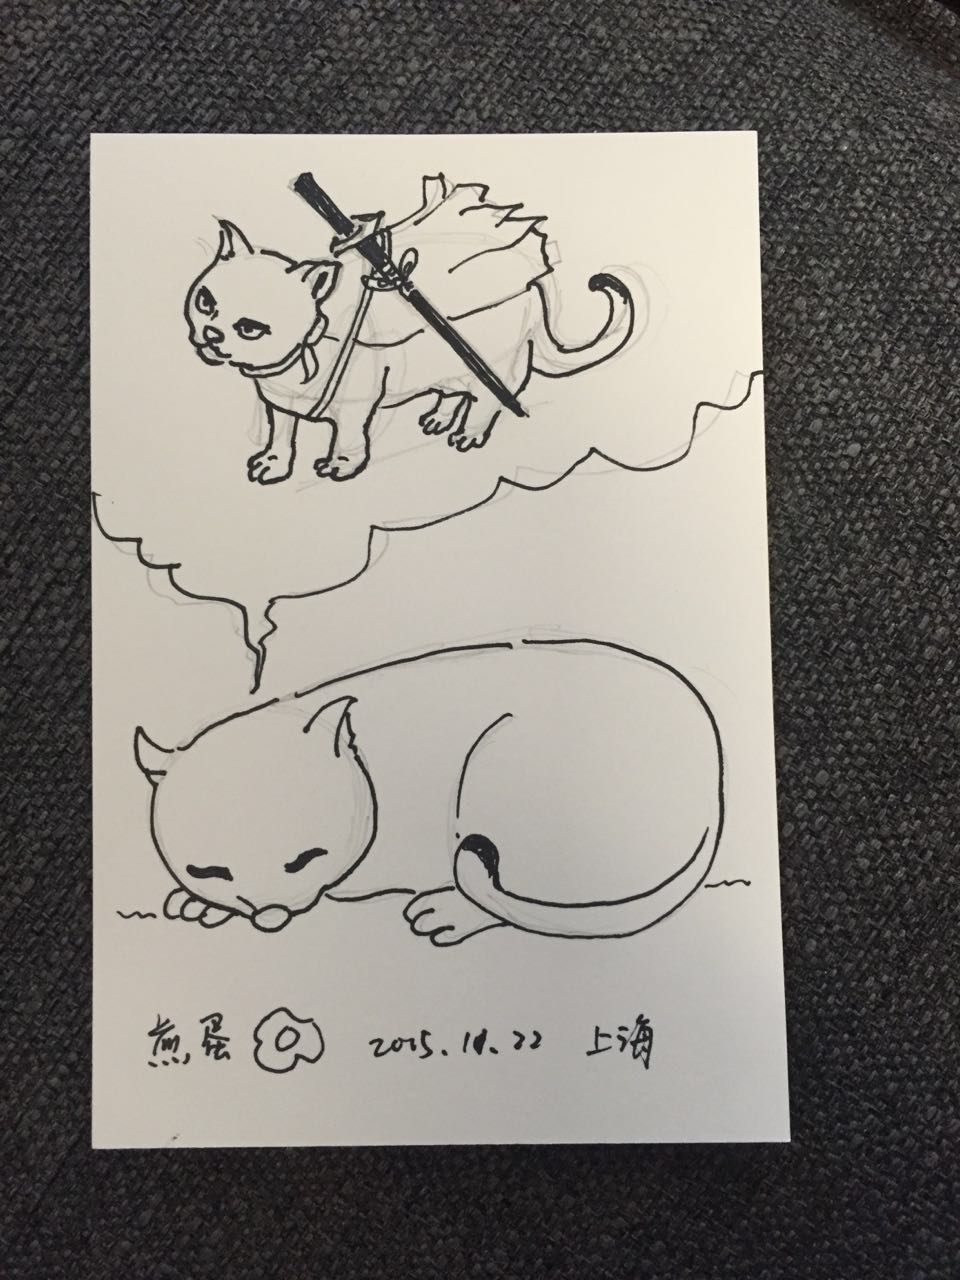 煎蛋 2015.11.22 上海